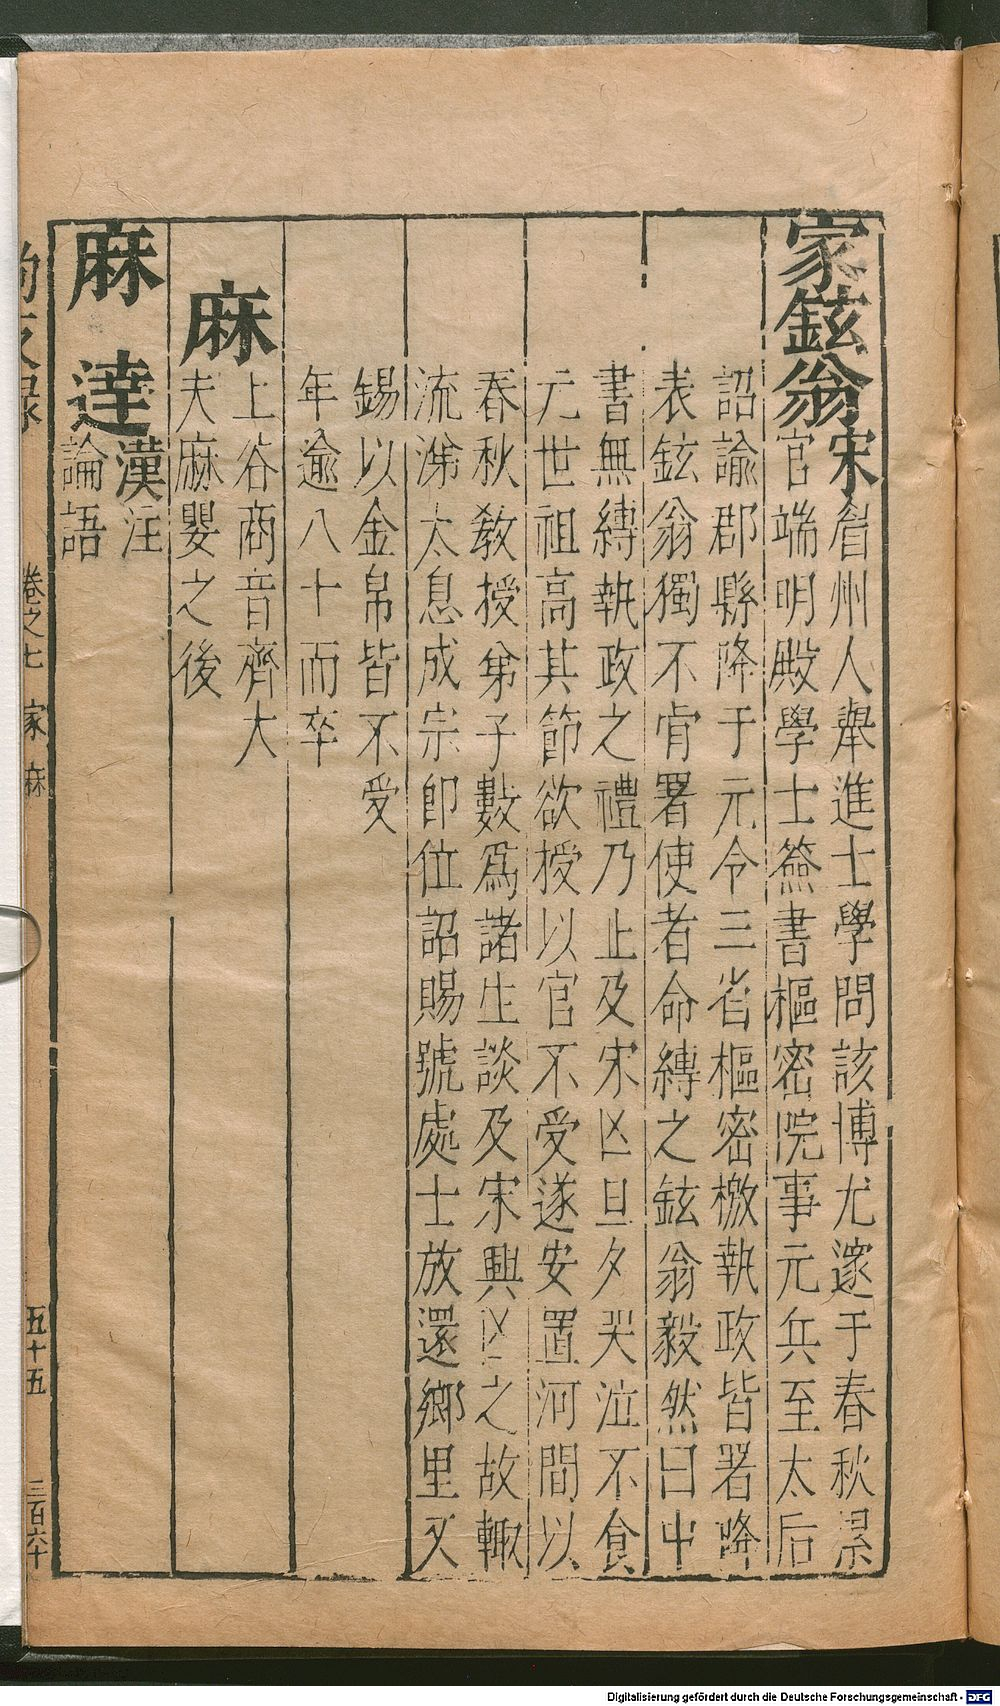 家鉉翁宋眉州人舉進士學問該博尤邃于春秋累
官端明殿學士簽書樞密院事元兵至太后
詔諭郡縣降于元令三省樞密檄執政皆署降
表鉉翁獨不肯署使者命縛之鉉翁毅然曰中
書無縛執政之禮乃止及宋亾旦夕哭泣不食
元世祖高其節欲授以官不受遂安置河間以
春秋敎授弟子數爲諸生談及宋興亾之故輒
流涕太息成宗即位詔賜號處士放還鄉里又
錫以金帛皆不受
年逾八十而卒
麻
上谷商音齊大
夫麻嬰之後
麻達
漢注
論語
卷之七 家 麻
五十五
三百六十
Digitalisierung gefördert durch die Deutsche Forschungsgemeinschaft - DFG